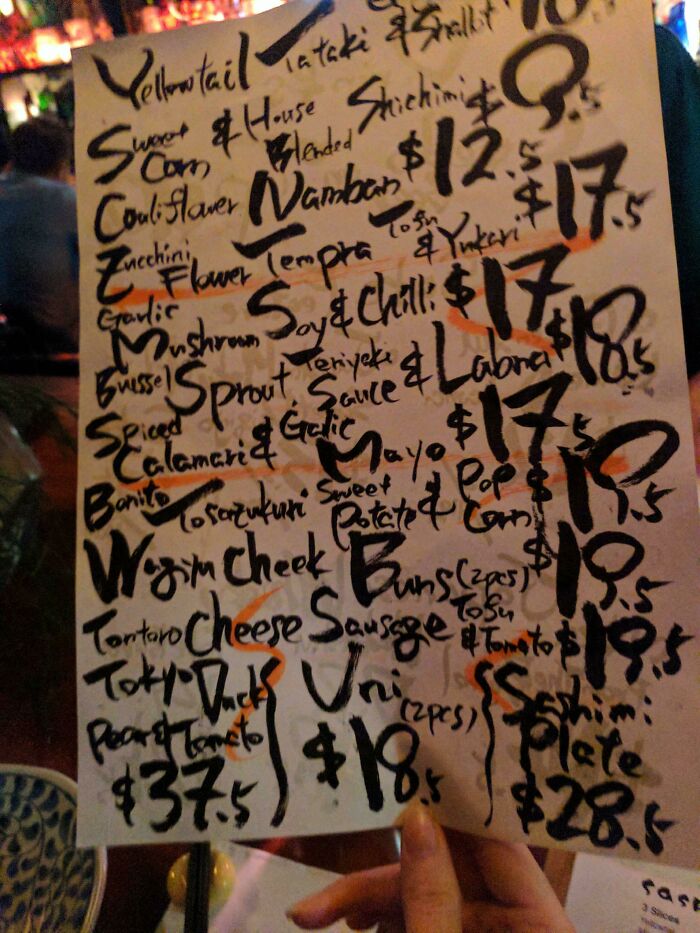 Yellowtail Tataki & Shallot
Sweet Corn & House Blended Shichimi $9.5
Couliflower Namban $12.5
Zucchini Flower Tempra Tofu & Yukari $17.5
Garlic Mushroom Soy & Chilli $17
Brussel Sprout Teriyaki Sauce & Labna $18.5
Spiced Calamari & Galic Mayo $17.5
Bonito Tosazukuri Sweet Potate & Pop Corn $19.5
Wagyu Cheek Buns (2pcs) $19.5
Tontoro Cheese Sausage Tofu & Tomato $19.5
Tokyo Duck Pear & Tomato $37.5
Uni (2pcs) $18.5
Sashimi Plate $28.5
3 Slices